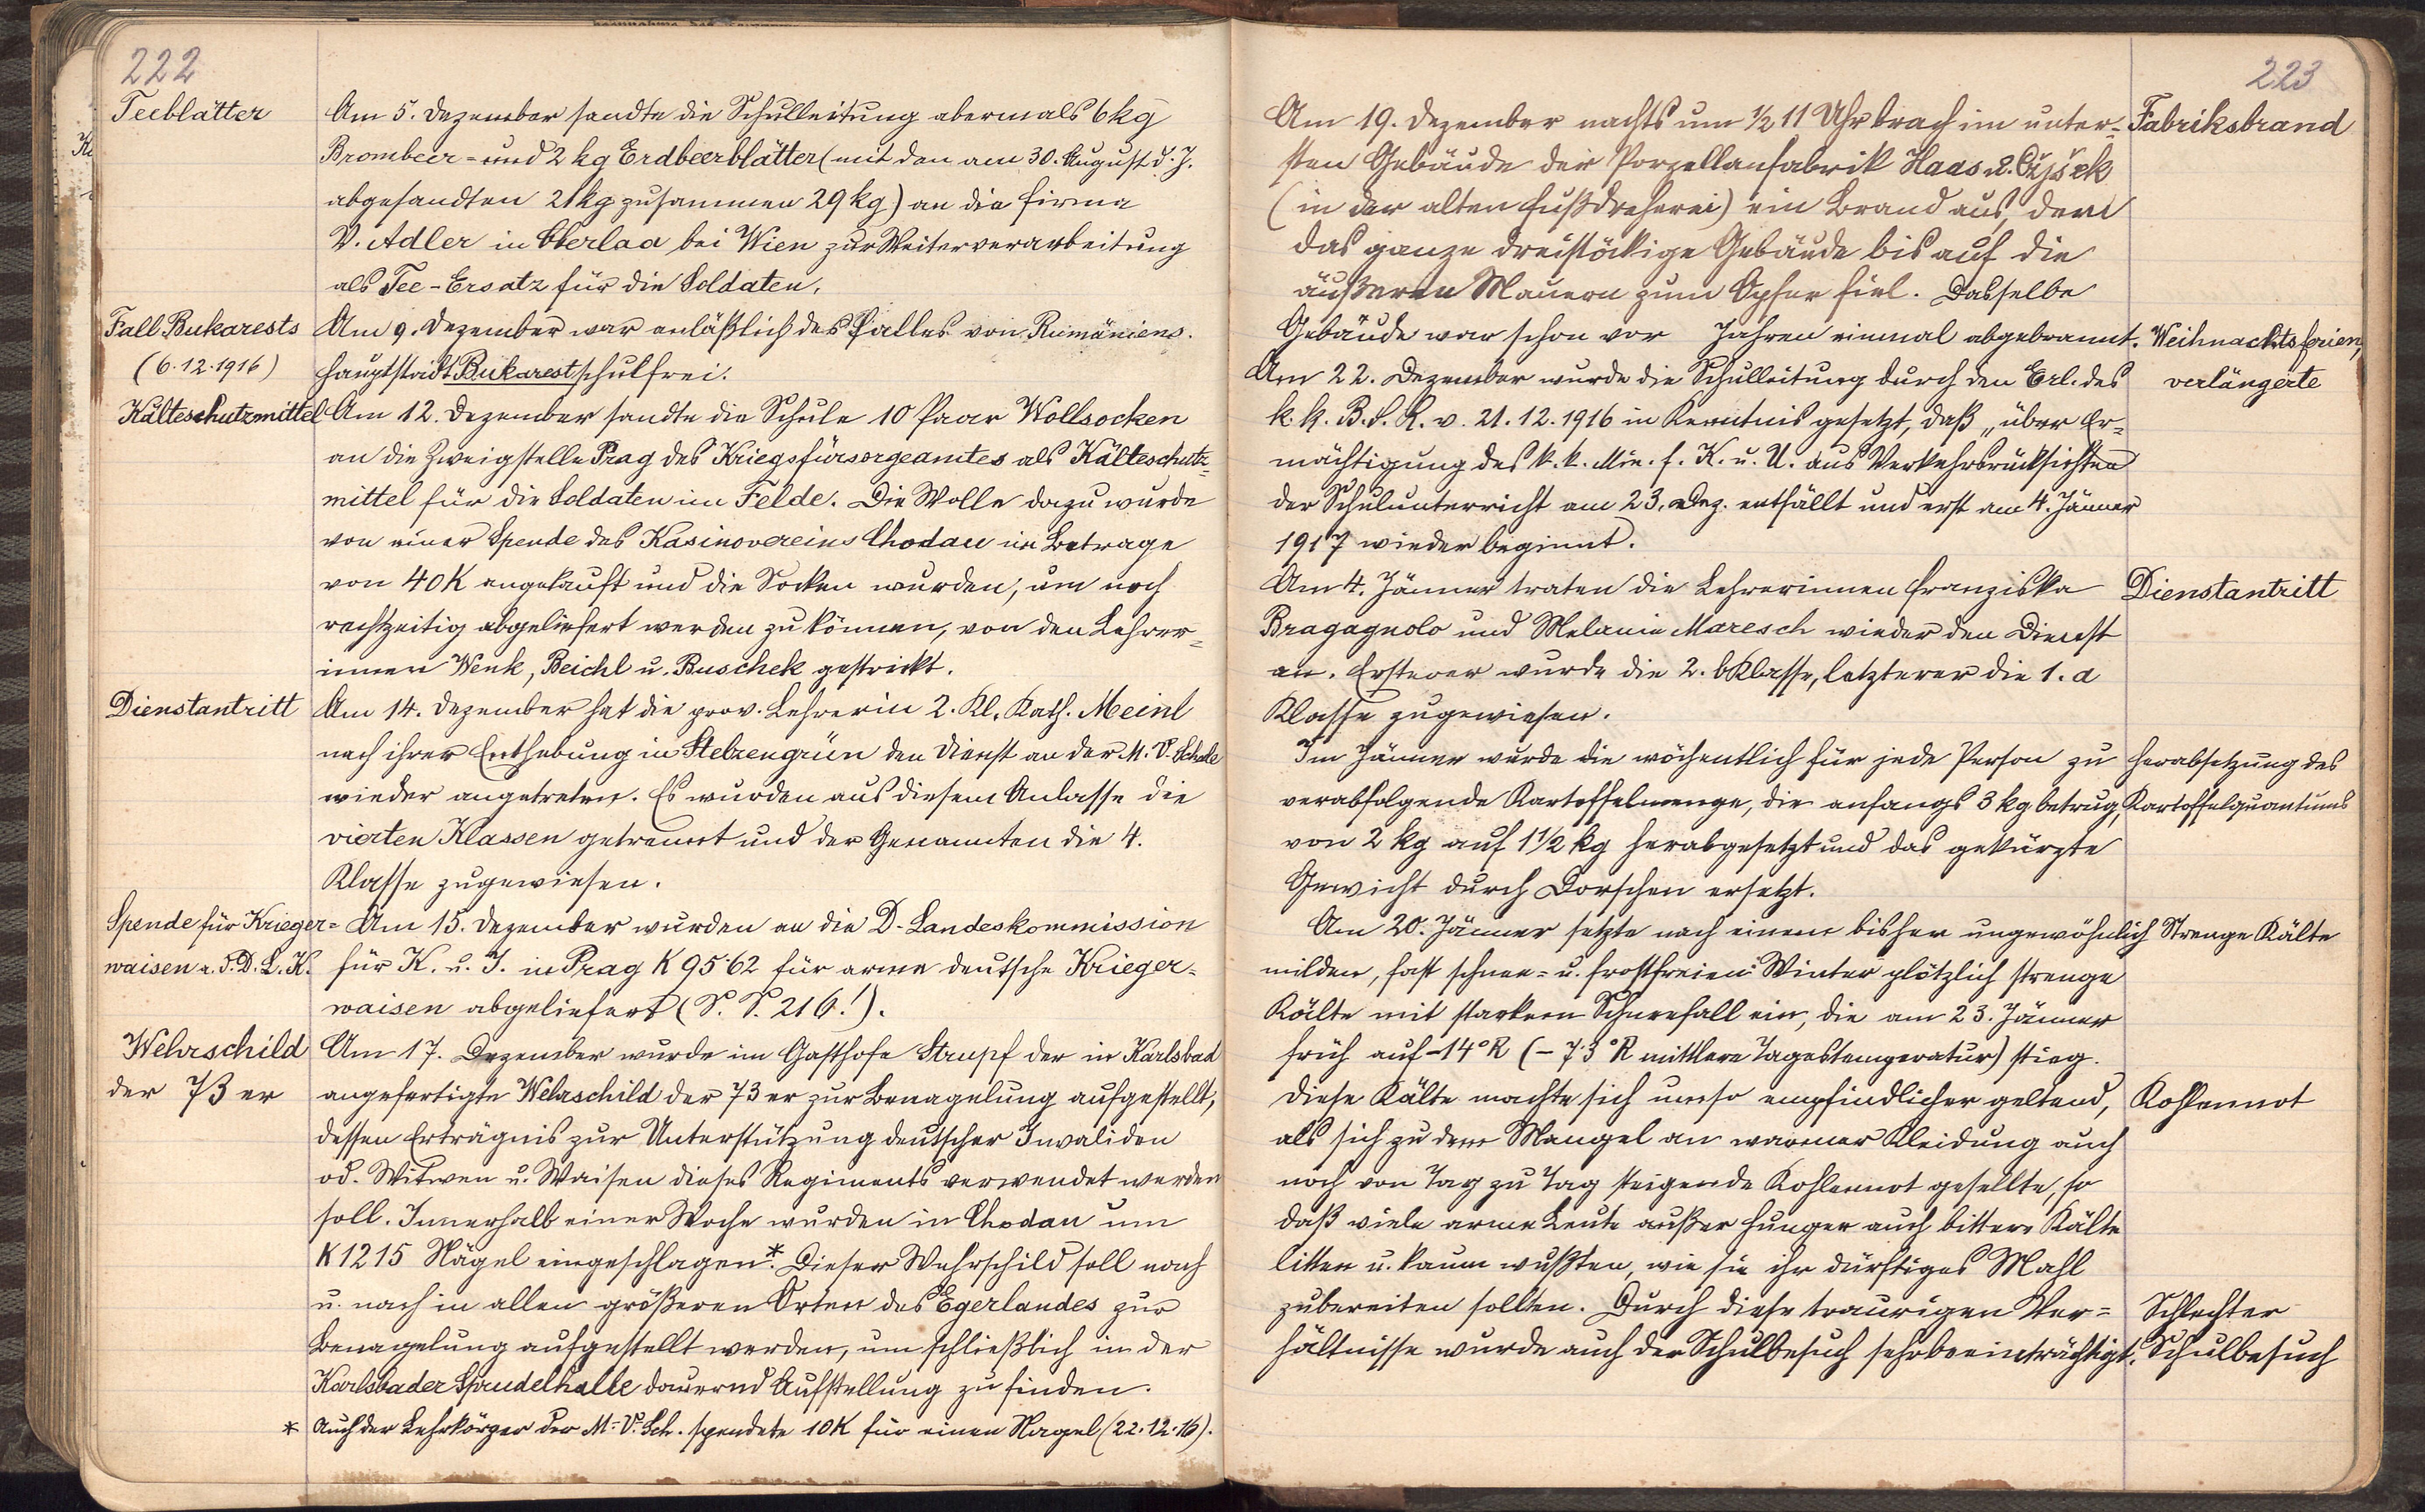 222
Teeblätter
Am 5. Dezember sandte die Schulleitung abermals 6 kg
Brombeer- und 2 kg Erdbeerblätter (mit den am 30. August d. J.
abgesandten 21 kg zusammen 29 kg) an die Firma
V. Adler in Oberlaa bei Wien zur Weiterverarbeitung
als Tee-Ersatz für die Soldaten.
Fall Bukarests
(6.12.1916)
Am 9. Dezember war anläßlich des Falles von Rumäniens
Hauptstadt Bukarest schulfrei.
Kälteschutzmittel
Am 12. Dezember sandte die Schule 10 Paar Wollsocken
an die Zweigstelle Prag des Kriegsfürsorgeamtes als Kälteschutz-
mittel für die Soldaten im Felde. Die Wolle dazu wurde
von einer Spende des Kasinovereins Chodau im Betrage
von 40 K angekauft und die Socken wurden, um noch
rechtzeitig abgeliefert werden zu können, von den Lehrer-
innen Wenk, Beichl u. Buschek gestrickt.
Dienstantritt
Am 14. Dezember hat die prov. Lehrerin 2. Kl. Kath. Meinl
nach ihrer Enthebung in Stelzengrün den Dienst an der M. V. Schule
wieder angetreten. Es wurden aus diesem Anlasse die
vierten Klassen getrennt und der Genannten die 4.
Klasse zugewiesen.
Spende für Krieger-
waisen a. d. D. L. K.
Am 15. Dezember wurden an die D. Landeskommission
für K. u. J. in Prag K 95·62 für arme deutsche Krieger-
waisen abgeliefert (S. S. 216!).
Wehrschild
der 73 er
Am 17. Dezember wurde im Gasthofe Strupf der in Karlsbad
angefertigte Wehrschild der 73 er zur Benagelung aufgestellt,
dessen Erträgnis zur Unterstützung deutscher Invaliden
od. Witwen u. Waisen dieses Regiments verwendet werden
soll. Innerhalb einer Woche wurden in Chodau um
K 1215 Nägel eingeschlagen.* Dieser Wehrschild soll nach
u. nach in allen größeren Orten des Egerlandes zur
Benagelung aufgestellt werden, um schließlich in der
Karlsbader Sprudelhalle dauernd Aufstellung zu finden.
* Auch der Lehrkörper der M.-V. Sch. spendete 10 K für einen Nagel (22.12.16).
223
Fabriksbrand
Am 19. Dezember nachts um 1/2 11 Uhr brach im unter-
sten Gebäude der Porzellanfabrik Haas u. Cžjžek
(in der alten Fußdreherei) ein Brand aus, dem
das ganze dreistöckige Gebäude bis auf die
äußeren Mauern zum Opfer fiel. Dasselbe
Gebäude war schon vor Jahren einmal abgebrannt.
Weihnachtsferien,
verlängerte
Am 22. Dezember wurde die Schulleitung durch den Erl. des
k. k. B. S. R. v. 21.12.1916 in Kenntnis gesetzt, daß „über Er-
mächtigung des k. k. Min. f. K. u. U. aus Verkehrsrücksichten
der Schulunterricht am 23. Dez. entfällt und erst am 4. Jänner
1917 wieder beginnt.
Dienstantritt
Am 4. Jänner traten die Lehrerinnen Franziska
Bragagnolo und Melanie Maresch wieder den Dienst
an. Ersterer wurde die 2. b Klasse, letzterer die 1. a
Klasse zugewiesen.
Herabsetzung des
Kartoffelquantums
Im Jänner wurde die wöchentlich für jede Person zu
verabfolgende Kartoffelmenge, die anfangs 3 kg betrug,
von 2 kg auf 1 1/2 kg herabgesetzt und das gekürzte
Gewicht durch Dorschen ersetzt.
Strenge Kälte
Am 20. Jänner setzte nach einem bisher ungewöhnlich
milden, fast schnee- u. frostfreien Winter plötzlich strenge
Kälte mit starkem Schneefall ein, die am 23. Jänner
früh auf -14°R (-7·3°R mittlere Tagestemperatur) stieg.
Kohlennot
Diese Kälte machte sich umso empfindlicher geltend,
als sich zu dem Mangel an warmer Kleidung auch
noch von Tag zu Tag steigende Kohlennot gesellte, so
daß viele arme Leute außer Hunger auch bittere Kälte
litten u. kaum wußten, wie sie ihr dürftiges Mahl
zubereiten sollten. Durch diese traurigen Ver-
hältnisse wurde auch der Schulbesuch sehr beeinträchtigt.
Schlechter
Schulbesuch